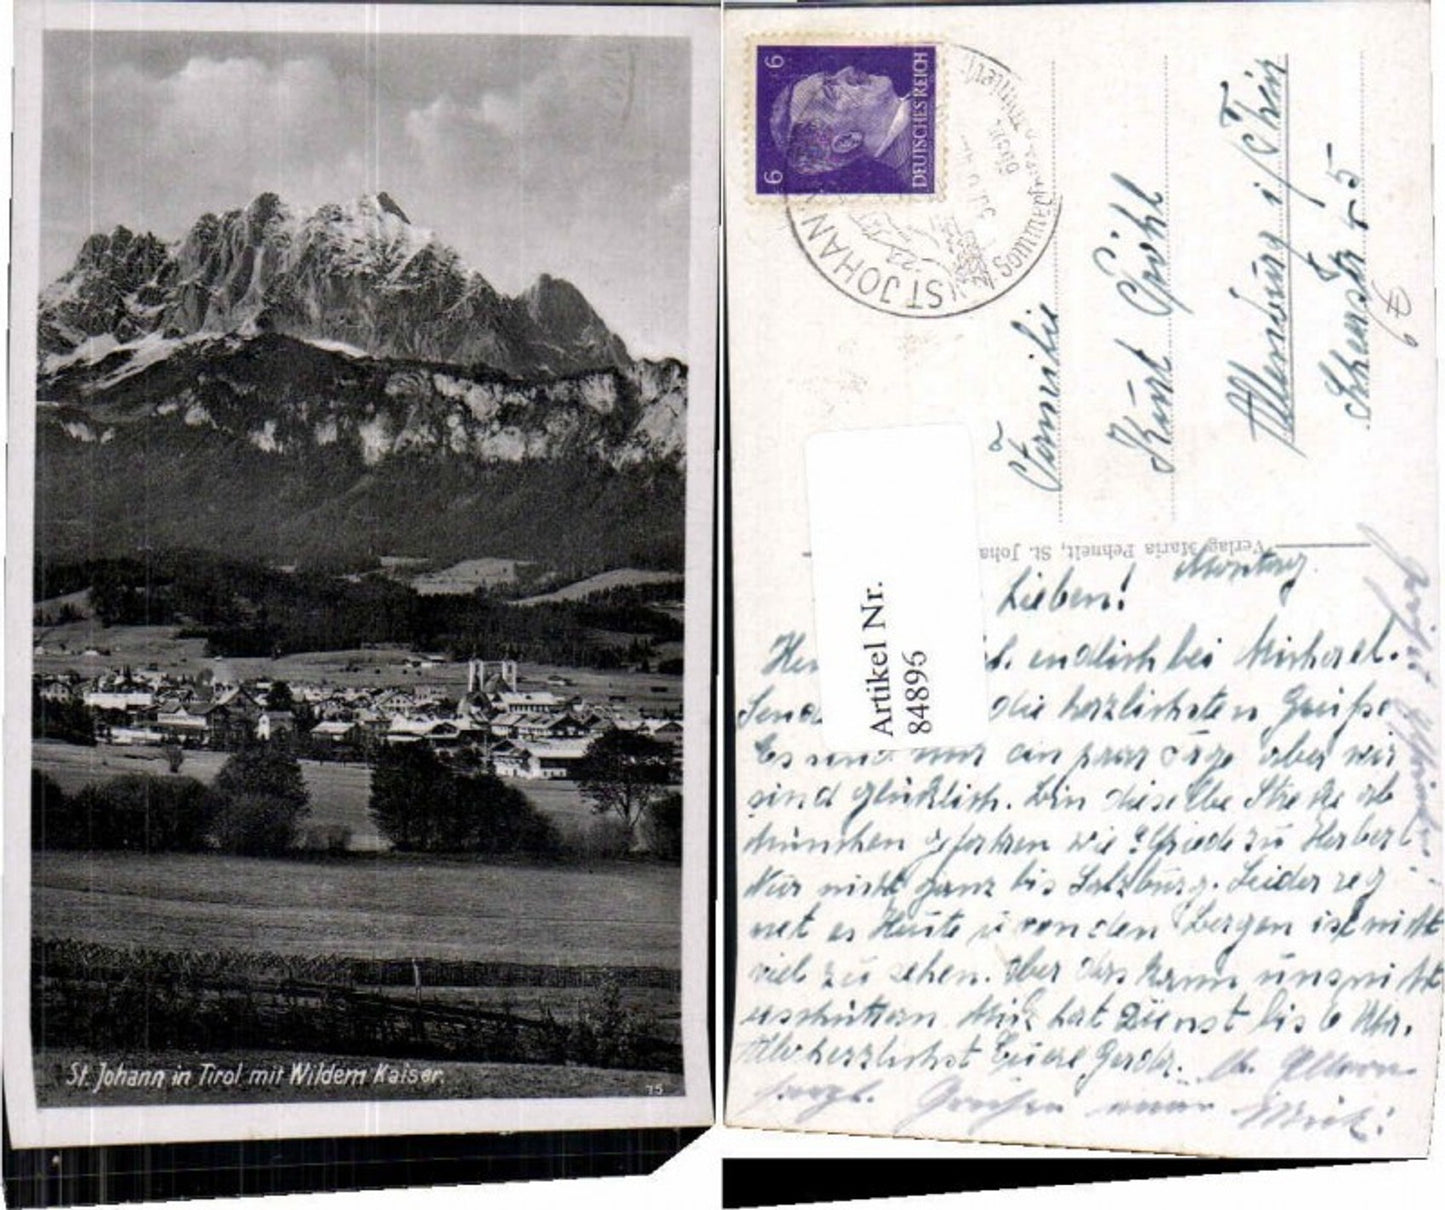 St. Johann in Tirol mit Wildem Kaiser.
75
6 6
DEUTSCHES REICH
ST JOHANN
Familie
Kurt
Altenburg i/Thür
5
Verlag Maria Pehnelt, St. Joha
Artikel Nr.
84895
Montag.
Lieben!
endlich bei Michael.
die herzlichsten Grüße
Es sind nur ein paar Tage aber wir
sind glücklich. Bin dieselbe Strecke ab
München gefahren wie Elfriede zu Herbert
Nur nicht ganz bis Salzburg. Leider reg
net es Heute u von den Bergen ist nicht
viel zu sehen. Aber das kann uns nicht
erschüttern. Mich hat Dienst bis 6 Uhr.
Allerherzlichst Euere Gerda.
herzl. Grüßen